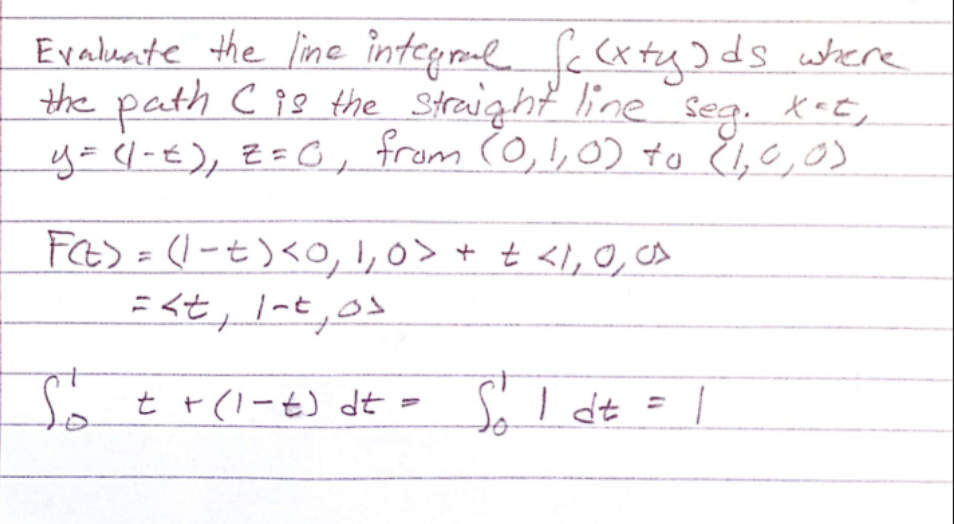 Evaluate the line integral ∫c (x+y) ds where
the path C is the straight line seg. x=t,
y=(1-t), z=0, from (0,1,0) to (1,0,0)
r(t) = (1-t)<0,1,0> + t<1,0,0>
= <t, 1-t, 0>
∫₀¹ t+(1-t) dt = ∫₀¹ 1 dt = 1